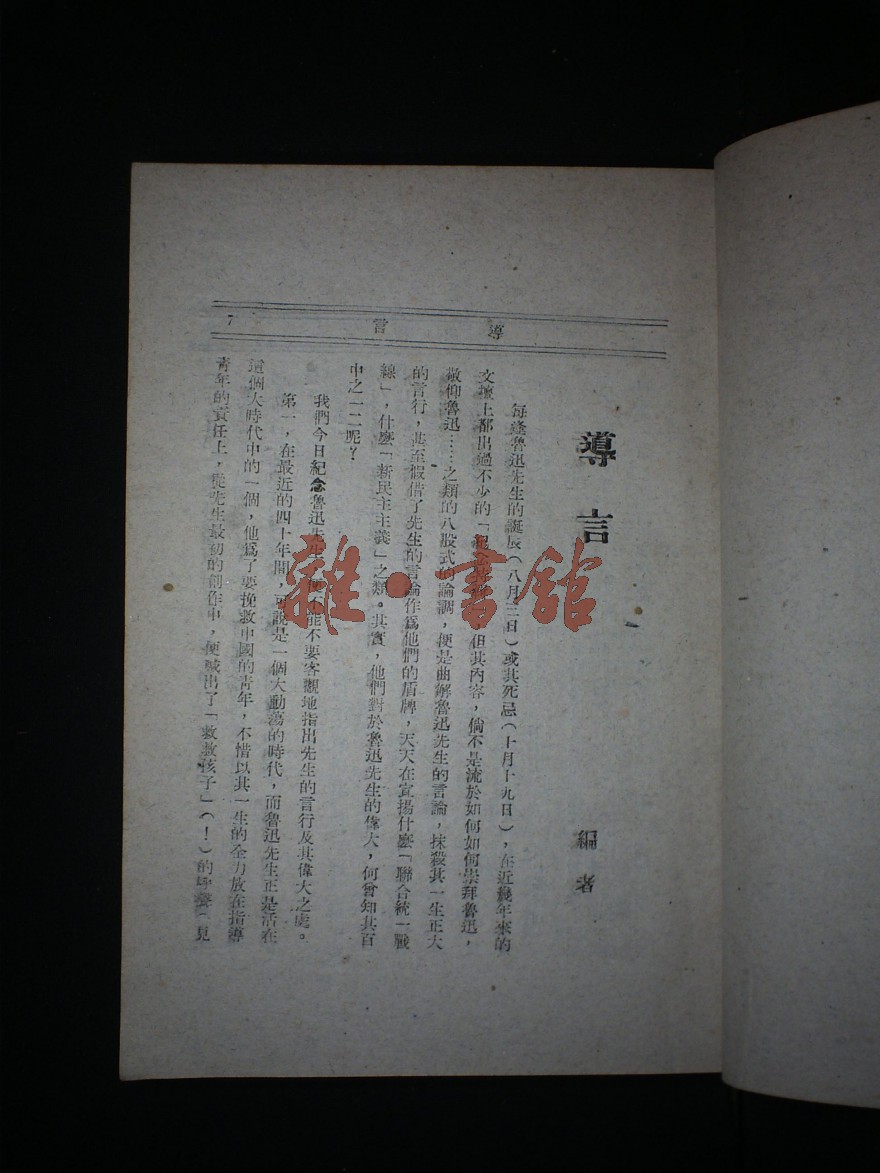 導言
7
導言
編者
每逢魯迅先生的誕辰(八月三日)或其死忌(十月十九日),在近幾年來的
文壇上都出過不少的「紀念 但其內容,倘不是流於如何如何崇拜魯迅,
敬仰魯迅……之類的八股式的論調,便是曲解魯迅先生的言論,抹殺其一生正大
的言行,甚至假借了先生的言論作爲他們的盾牌,天天在宣揚什麽「聯合統一戰
線」,什麽「新民主主義」之類。其實,他們對於魯迅先生的偉大,何曾知其百
中之一二呢?
我們今日紀念魯迅先生,便不能不要客觀地指出先生的言行及其偉大之處。
第一,在最近的四十年間,可說是一個大動蕩的時代,而魯迅先生正是活在
這個大時代中的一個,他爲了要挽救中國的青年,不惜以其一生的全力放在指導
青年的責任上,從先生最初的創作中,便喊出了「救救孩子」(!)的呼聲(見
雜·書舘